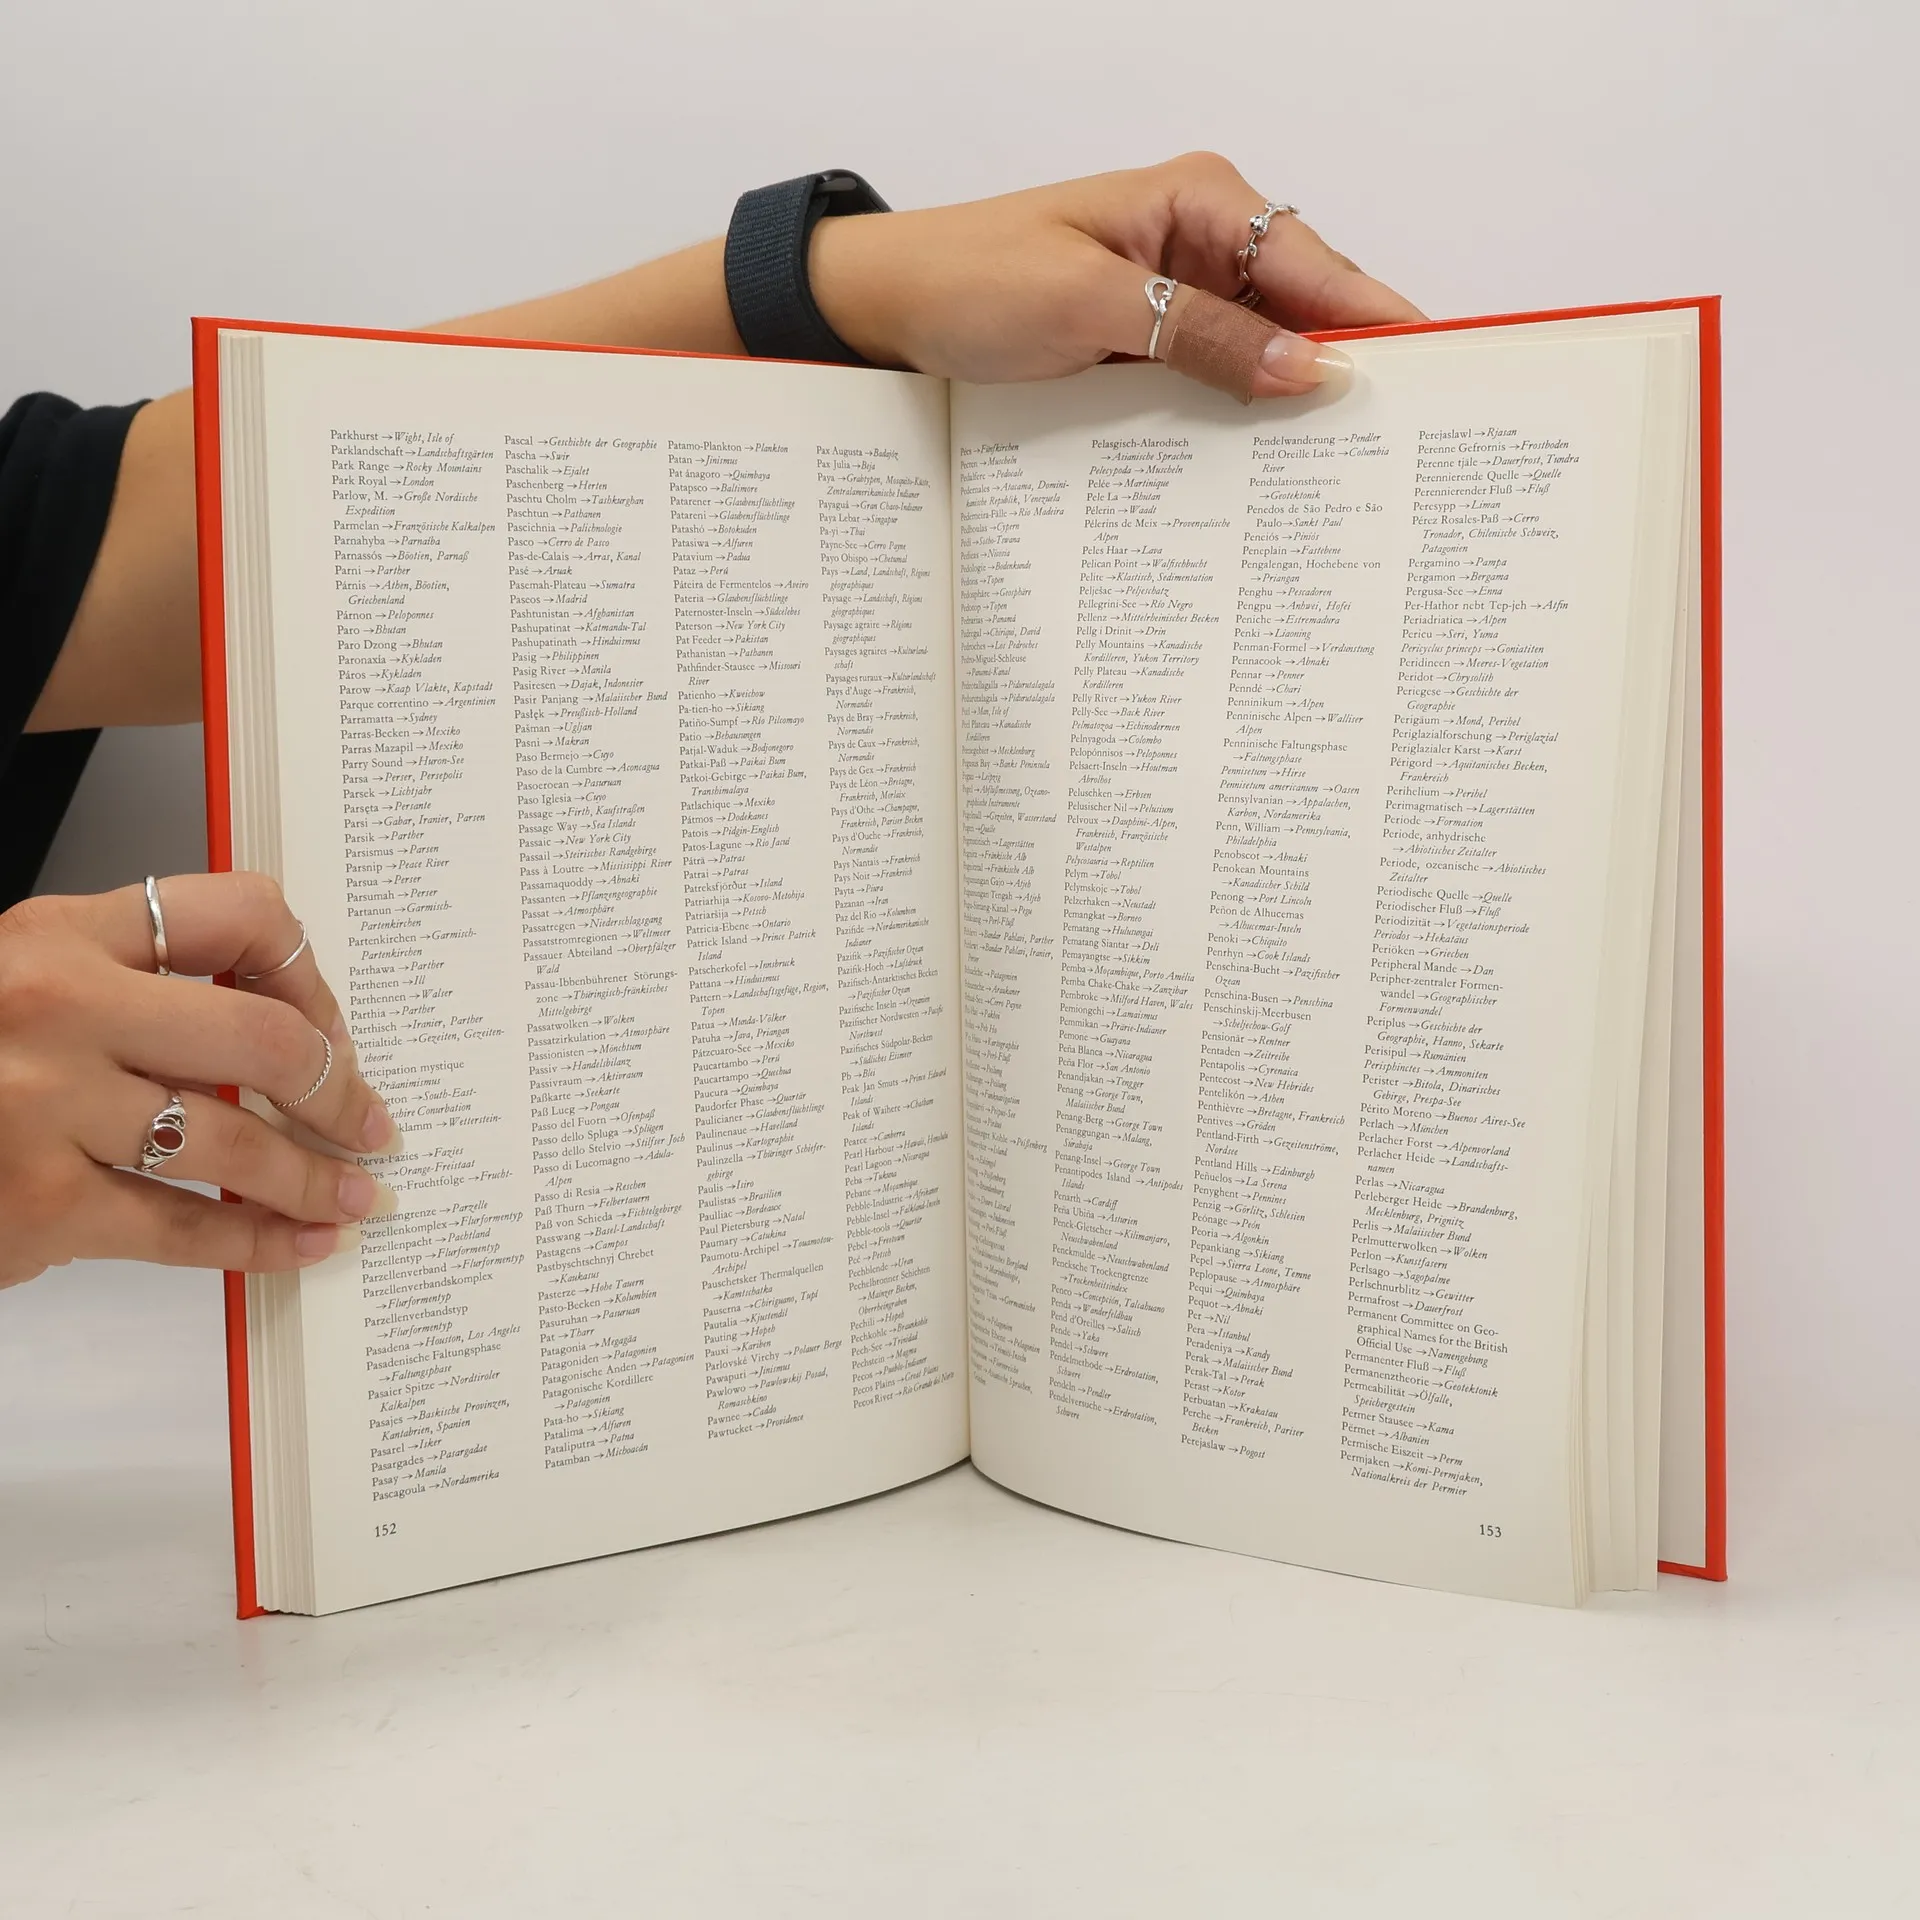 Parkhurst →Wight, Isle of
Parklandschaft →Landschaftsgärten
Park Range →Rocky Mountains
Park Royal →London
Parlow, M. →Große Nordische
Expedition
Parmelan →Französische Kalkalpen
Parnahyba →Parnaíba
Parnassós →Böotien, Parnaß
Parni →Parther
Párnis →Athen, Böotien,
Griechenland
Párnon →Peloponnes
Paro →Bhutan
Paro Dzong →Bhutan
Paronaxia →Kykladen
Páros →Kykladen
Parow →Kaap Vlakte, Kapstadt
Parque correntino →Argentinien
Parramatta →Sydney
Parras-Becken →Mexiko
Parras Mazapil →Mexiko
Parry Sound →Huron-See
Parsa →Perser, Persepolis
Parsek →Lichtjahr
Parsęta →Persante
Parsi →Gabar, Iranier, Parsen
Parsik →Parther
Parsismus →Parsen
Parsnip →Peace River
Parsua →Perser
Parsumah →Perser
Partanun →Garmisch-
Partenkirchen
Partenkirchen →Garmisch-
Partenkirchen
Parthawa →Parther
Parthenen →Ill
Parthennen →Walser
Parthia →Parther
Parthisch →Iranier, Parther
Partialtide →Gezeiten, Gezeiten-
theorie
articipation mystique
→Präanimismus
ngton →South-East-
shire Conurbation
klamm →Wetterstein-
Parva-Fazies →Fazies
rys →Orange-Freistaat
llen-Fruchtfolge →Frucht-
Parzellengrenze →Parzelle
Parzellenkomplex →Flurformentyp
Parzellenpacht →Pachtland
Parzellentyp →Flurformentyp
Parzellenverband →Flurformentyp
Parzellenverbandskomplex
→Flurformentyp
Parzellenverbandstyp
→Flurformentyp
Pasadena →Houston, Los Angeles
Pasadenische Faltungsphase
→Faltungsphase
Pasaier Spitze →Nordtiroler
Kalkalpen
Pasajes →Baskische Provinzen,
Kantabrien, Spanien
Pasarel →Isker
Pasargades →Pasargadae
Pasay →Manila
Pascagoula →Nordamerika
Pascal →Geschichte der Geographie
Pascha →Swir
Paschalik →Ejalet
Paschenberg →Herten
Paschtu Cholm →Tashkurghan
Paschtun →Pathanen
Pascichnia →Palichnologie
Pasco →Cerro de Pasco
Pas-de-Calais →Arras, Kanal
Pasé →Aruak
Pasemah-Plateau →Sumatra
Paseos →Madrid
Pashtunistan →Afghanistan
Pashupatinat →Katmandu-Tal
Pashupatinath →Hinduismus
Pasig →Philippinen
Pasig River →Manila
Pasiresen →Dajak, Indonesier
Pasir Panjang →Malaiischer Bund
Pasłęk →Preußisch-Holland
Pašman →Ugljan
Pasni →Makran
Paso Bermejo →Cuyo
Paso de la Cumbre →Aconcagua
Pasoeroean →Pasuruan
Paso Iglesia →Cuyo
Passage →Firth, Kaufstraßen
Passage Way →Sea Islands
Passaic →New York City
Passail →Steirisches Randgebirge
Pass à Loutre →Mississippi River
Passamaquoddy →Abnaki
Passanten →Pflanzengeographie
Passat →Atmosphäre
Passatregen →Niederschlagsgang
Passatstromregionen →Weltmeer
Passauer Abteiland →Oberpfälzer
Wald
Passau-Ibbenbührener Störungs-
zone →Thüringisch-fränkisches
Mittelgebirge
Passatwolken →Wolken
Passatzirkulation →Atmosphäre
Passionisten →Mönchtum
Passiv →Handelsbilanz
Passivraum →Aktivraum
Paßkarte →Seekarte
Paß Lueg →Pongau
Passo del Fuorn →Ofenpaß
Passo dello Spluga →Splügen
Passo dello Stelvio →Stilfser Joch
Passo di Lucomagno →Adula-
Alpen
Passo di Resia →Reschen
Paß Thurn →Felbertauern
Paß von Schieda →Fichtelgebirge
Passwang →Basel-Landschaft
Pastagens →Campos
Pastbyschtschnyj Chrebet
→Kaukasus
Pasterze →Hohe Tauern
Pasto-Becken →Kolumbien
Pasuruhan →Pasuruan
Pat →Tharr
Patagonia →Megagäa
Patagoniden →Patagonien
Patagonische Anden →Patagonien
Patagonische Kordillere
→Patagonien
Pata-ho →Sikiang
Patalima →Alfuren
Pataliputra →Patna
Patamban →Michoacán
Patamo-Plankton →Plankton
Patan →Jinismus
Pat ánagoro →Quimbaya
Patapsco →Baltimore
Patarener →Glaubensflüchtlinge
Patareni →Glaubensflüchtlinge
Patashó →Botokuden
Patasiwa →Alfuren
Patavium →Padua
Pataz →Perú
Páteira de Fermentelos →Aveiro
Pateria →Glaubensflüchtlinge
Paternoster-Inseln →Südcelebes
Paterson →New York City
Pat Feeder →Pakistan
Pathanistan →Pathanen
Pathfinder-Stausee →Missouri
River
Patienho →Kweichow
Pa-tien-ho →Sikiang
Patiño-Sumpf →Río Pilcomayo
Patio →Behausungen
Patjal-Waduk →Bodjonegoro
Patkai-Paß →Paikai Bum
Patkoi-Gebirge →Paikai Bum,
Transhimalaya
Patlachique →Mexiko
Pátmos →Dodekanes
Patois →Pidgin-English
Patos-Lagune →Rio Jacuí
Páträ →Patras
Patrai →Patras
Patreksfjörður →Island
Patriarhija →Kosovo-Metohija
Patriaršija →Petsch
Patricia-Ebene →Ontario
Patrick Island →Prince Patrick
Island
Patscherkofel →Innsbruck
Pattana →Hinduismus
Pattern →Landschaftsgefüge, Region,
Topen
Patua →Munda-Völker
Patuha →Java, Priangan
Pátzcuaro-See →Mexiko
Paucartambo →Perú
Paucartampo →Quechua
Paucura →Quimbaya
Paudorfer Phase →Quartär
Paulicianer →Glaubensflüchtlinge
Paulinenaue →Havelland
Paulinus →Kartographie
Paulinzella →Thüringer Schiefer-
gebirge
Paulis →Isiro
Paulistas →Brasilien
Paulliac →Bordeaux
Paul Pietersburg →Natal
Paumary →Catukina
Paumotu-Archipel →Touamotou-
Archipel
Pauschetsker Thermalquellen
→Kamtschatka
Pauserna →Chiriguano, Tupí
Pautalia →Kjustendil
Pauting →Hopeh
Pauxi →Kariben
Pavlovské Virchy →Polauer Berge
Pawapuri →Jinismus
Pawlowo →Pawlowskij Posad,
Romaschkino
Pawnee →Caddo
Pawtucket →Providence
Pax Augusta →Badajóz
Pax Julia →Beja
Paya →Grabtypen, Mosquito-Küste,
Zentralamerikanische Indianer
Payaguá →Gran Chaco-Indianer
Paya Lebar →Singapur
Pa-yi →Thai
Payne-See →Cerro Payne
Payo Obispo →Chetumal
Pays →Land, Landschaft, Régions
géographiques
Paysage →Landschaft, Régions
géographiques
Paysage agraire →Régions
géographiques
Paysages agraires →Kulturland-
schaft
Paysages ruraux →Kulturlandschaft
Pays d'Auge →Frankreich,
Normandie
Pays de Bray →Frankreich,
Normandie
Pays de Caux →Frankreich,
Normandie
Pays de Gex →Frankreich
Pays de Léon →Bretagne,
Frankreich, Morlaix
Pays d'Othe →Champagne,
Frankreich, Pariser Becken
Pays d'Ouche →Frankreich,
Normandie
Pays Nantais →Frankreich
Pays Noit →Frankreich
Payta →Piura
Pazanan →Iran
Paz del Rio →Kolumbien
Pazifide →Nordamerikanische
Indianer
Pazifik →Pazifischer Ozean
Pazifik-Hoch →Luftdruck
Pazifisch-Antarktisches Becken
→Pazifischer Ozean
Pazifische Inseln →Ozeanien
Pazifischer Nordwesten →Pacific
Northwest
Pazifisches Südpolar-Becken
→Südliches Eismeer
Pb →Blei
Peak Jan Smuts →Prince Edward
Islands
Peak of Waihere →Chatham
Islands
Pearce →Canberra
Pearl Harbour →Hawaii, Honolulu
Pearl Lagoon →Nicaragua
Peba →Tukuna
Pebane →Moçambique
Pebble-Industrie →Afrikaner
Pebble-Insel →Falkland-Inseln
Pebble-tools →Quartär
Pebel →Freetown
Peć →Petsch
Pechblende →Uran
Pechelbronner Schichten
→Mainzer Becken,
Oberrheingraben
Pechili →Hopeh
Pechkohle →Braunkohle
Pech-See →Trinidad
Pechstein →Magma
Pecos →Pueblo-Indianer
Pecos Plains →Great Plains
Pecos River →Rio Grande del Norte
152
Pécs →Fünfkirchen
Pecten →Muscheln
Pedalfere →Pedocale
Pedernales →Atacama, Domini-
kanische Republik, Venezuela
Pederneira-Fälle →Rio Madeira
Pedhoulas →Cypern
Pedi →Sotho-Tswana
Pedologie →Bodenkunde
Pedosphäre →Geosphäre
Pedotop →Topen
Pedrarias →Panamá
Pedregal →Chiriquí, David
Pedroches →Los Pedroches
Pedro-Miguel-Schleuse
→Panamá-Kanal
Peel →Man, Isle of
Peel Plateau →Kanadische
Kordilleren
Pegasus Bay →Banks Peninsula
Pegau →Leipzig
Pegel →Abflußmessung, Ozeano-
graphische Instrumente
Pelasgisch-Alarodisch
→Asianische Sprachen
Pelecypoda →Muscheln
Pelée →Martinique
Pele La →Bhutan
Pélerin →Waadt
Pélerins de Meix →Provençalische
Alpen
Peles Haar →Lava
Pelican Point →Walfischbucht
Pelite →Klastisch, Sedimentation
Pelješac →Peljeschatz
Pellegrini-See →Río Negro
Pellenz →Mittelrheinisches Becken
Pellg i Drinit →Drin
Pelly Mountains →Kanadische
Kordilleren, Yukon Territory
Pelly Plateau →Kanadische
Kordilleren
Pelly River →Yukon River
Pelly-See →Back River
Pelmatozoa →Echinodermen
Pelnyagoda →Colombo
Pelopónnisos →Peloponnes
Pelsaert-Inseln →Houtman
Abrolhos
Peluschken →Erbsen
Pelusischer Nil →Pelusium
Pelvoux →Dauphiné-Alpen,
Frankreich, Französische
Westalpen
Pelycosauria →Reptilien
Pelym →Tobol
Pelymskoje →Tobol
Pelzerhaken →Neustadt
Pemangkat →Borneo
Pematang →Hulusungai
Pematang Siantar →Deli
Pemayangtse →Sikkim
Pemba →Moçambique, Porto Amélia
Pemba Chake-Chake →Zanzibar
Pembroke →Milford Haven, Wales
Pemiongchi →Lamaismus
Pemmikan →Prärie-Indianer
Pemone →Guayana
Peña Blanca →Nicaragua
Peña Flor →San Antonio
Penandjakan →Tengger
Penang →George Town,
Malaiischer Bund
Penang-Berg →George Town
Penanggungan →Malang,
Surabaja
Penang-Insel →George Town
Penantipodes Island →Antipodes
Islands
Penarth →Cardiff
Peña Ubiña →Asturien
Penck-Gletscher →Kilimanjaro,
Neuschwabenland
Penckmulde →Neuschwabenland
Pencksche Trockengrenze
→Trockenheitsindex
Penco →Concepción, Talcahuano
Penda →Wanderfeldbau
Pend d'Oreilles →Salisch
Pende →Yaka
Pendel →Schwere
Pendelmethode →Erdrotation,
Schwere
Pendeln →Pendler
Pendelversuche →Erdrotation,
Schwere
Pendelwanderung →Pendler
Pend Oreille Lake →Columbia
River
Pendulationstheorie
→Geotektonik
Penedos de São Pedro e São
Paulo →Sankt Paul
Penciós →Piniós
Peneplain →Fastebene
Pengalengan, Hochebene von
→Priangan
Penghu →Pescadoren
Pengpu →Anhwei, Hofei
Peniche →Estremadura
Penki →Liaoning
Penman-Formel →Verdunstung
Pennacook →Abnaki
Pennar →Penner
Penndé →Chari
Penninikum →Alpen
Penninische Alpen →Walliser
Alpen
Penninische Faltungsphase
→Faltungsphase
Pennisetum →Hirse
Pennisetum americanum →Oasen
Pennsylvanian →Appalachen,
Karbon, Nordamerika
Penn, William →Pennsylvania,
Philadelphia
Penobscot →Abnaki
Penokean Mountains
→Kanadischer Schild
Penong →Port Lincoln
Peñon de Alhucemas
→Alhucemas-Inseln
Penoki →Chiquito
Penrhyn →Cook Islands
Penschina-Bucht →Pazifischer
Ozean
Penschina-Busen →Penschina
Penschinskij-Meerbusen
→Scheljechow-Golf
Pensionär →Rentner
Pentaden →Zeitreihe
Pentapolis →Cyrenaica
Pentecost →New Hebrides
Pentelikón →Athen
Penthièvre →Bretagne, Frankreich
Pentives →Gröden
Pentland-Firth →Gezeitenströme,
Nordsee
Pentland Hills →Edinburgh
Peñuelos →La Serena
Penyghent →Pennines
Penzig →Görlitz, Schlesien
Peónage →Peón
Peoria →Algonkin
Pepankiang →Sikiang
Pepel →Sierra Leone, Temne
Peplopause →Atmosphäre
Pequi →Quimbaya
Pequot →Abnaki
Per →Nil
Pera →Istanbul
Peradeniya →Kandy
Perak →Malaiischer Bund
Perak-Tal →Perak
Perast →Kotor
Perbuatan →Krakatau
Perche →Frankreich, Pariser
Becken
Perejaslaw →Pogost
Perejaslawl →Rjasan
Perenne Gefrornis →Frostboden
Perenne tjäle →Dauerfrost, Tundra
Perennierende Quelle →Quelle
Perennierender Fluß →Fluß
Peresypp →Liman
Pérez Rosales-Paß →Cerro
Tronador, Chilenische Schweiz,
Patagonien
Pergamino →Pampa
Pergamon →Bergama
Pergusa-See →Enna
Per-Hathor nebt Tep-jeh →Atfin
Periadriatica →Alpen
Pericu →Seri, Yuma
Pericyclus princeps →Goniatiten
Peridineen →Meeres-Vegetation
Peridot →Chrysolith
Periegese →Geschichte der
Geographie
Perigäum →Mond, Perihel
Periglazialforschung →Periglazial
Periglazialer Karst →Karst
Périgord →Aquitanisches Becken,
Frankreich
Perihelium →Perihel
Perimagmatisch →Lagerstätten
Periode →Formation
Periode, anhydrische
→Abiotisches Zeitalter
Periode, ozeanische →Abiotisches
Zeitalter
Periodische Quelle →Quelle
Periodischer Fluß →Fluß
Periodizität →Vegetationsperiode
Períodos →Hekatäus
Periöken →Griechen
Peripheral Mande →Dan
Peripher-zentraler Formen-
wandel →Geographischer
Formenwandel
Periplus →Geschichte der
Geographie, Hanno, Sekarte
Perisipul →Rumänien
Perisphinctes →Ammoniten
Perister →Bitola, Dinarisches
Gebirge, Prespa-See
Périto Moreno →Buenos Aires-See
Perlach →München
Perlacher Forst →Alpenvorland
Perlacher Heide →Landschafts-
namen
Perlas →Nicaragua
Perleberger Heide →Brandenburg,
Mecklenburg, Prignitz
Perlis →Malaiischer Bund
Perlmutterwolken →Wolken
Perlon →Kunstfasern
Perlsago →Sagopalme
Perlschnurblitz →Gewitter
Permafrost →Dauerfrost
Permanent Committee on Geo-
graphical Names for the British
Official Use →Namengebung
Permanenter Fluß →Fluß
Permanenztheorie →Geotektonik
Permeabilität →Ölfalle,
Speichergestein
Permer Stausee →Kama
Përmet →Albanien
Permische Eiszeit →Perm
Permjaken →Komi-Permjaken,
Nationalkreis der Permier
153